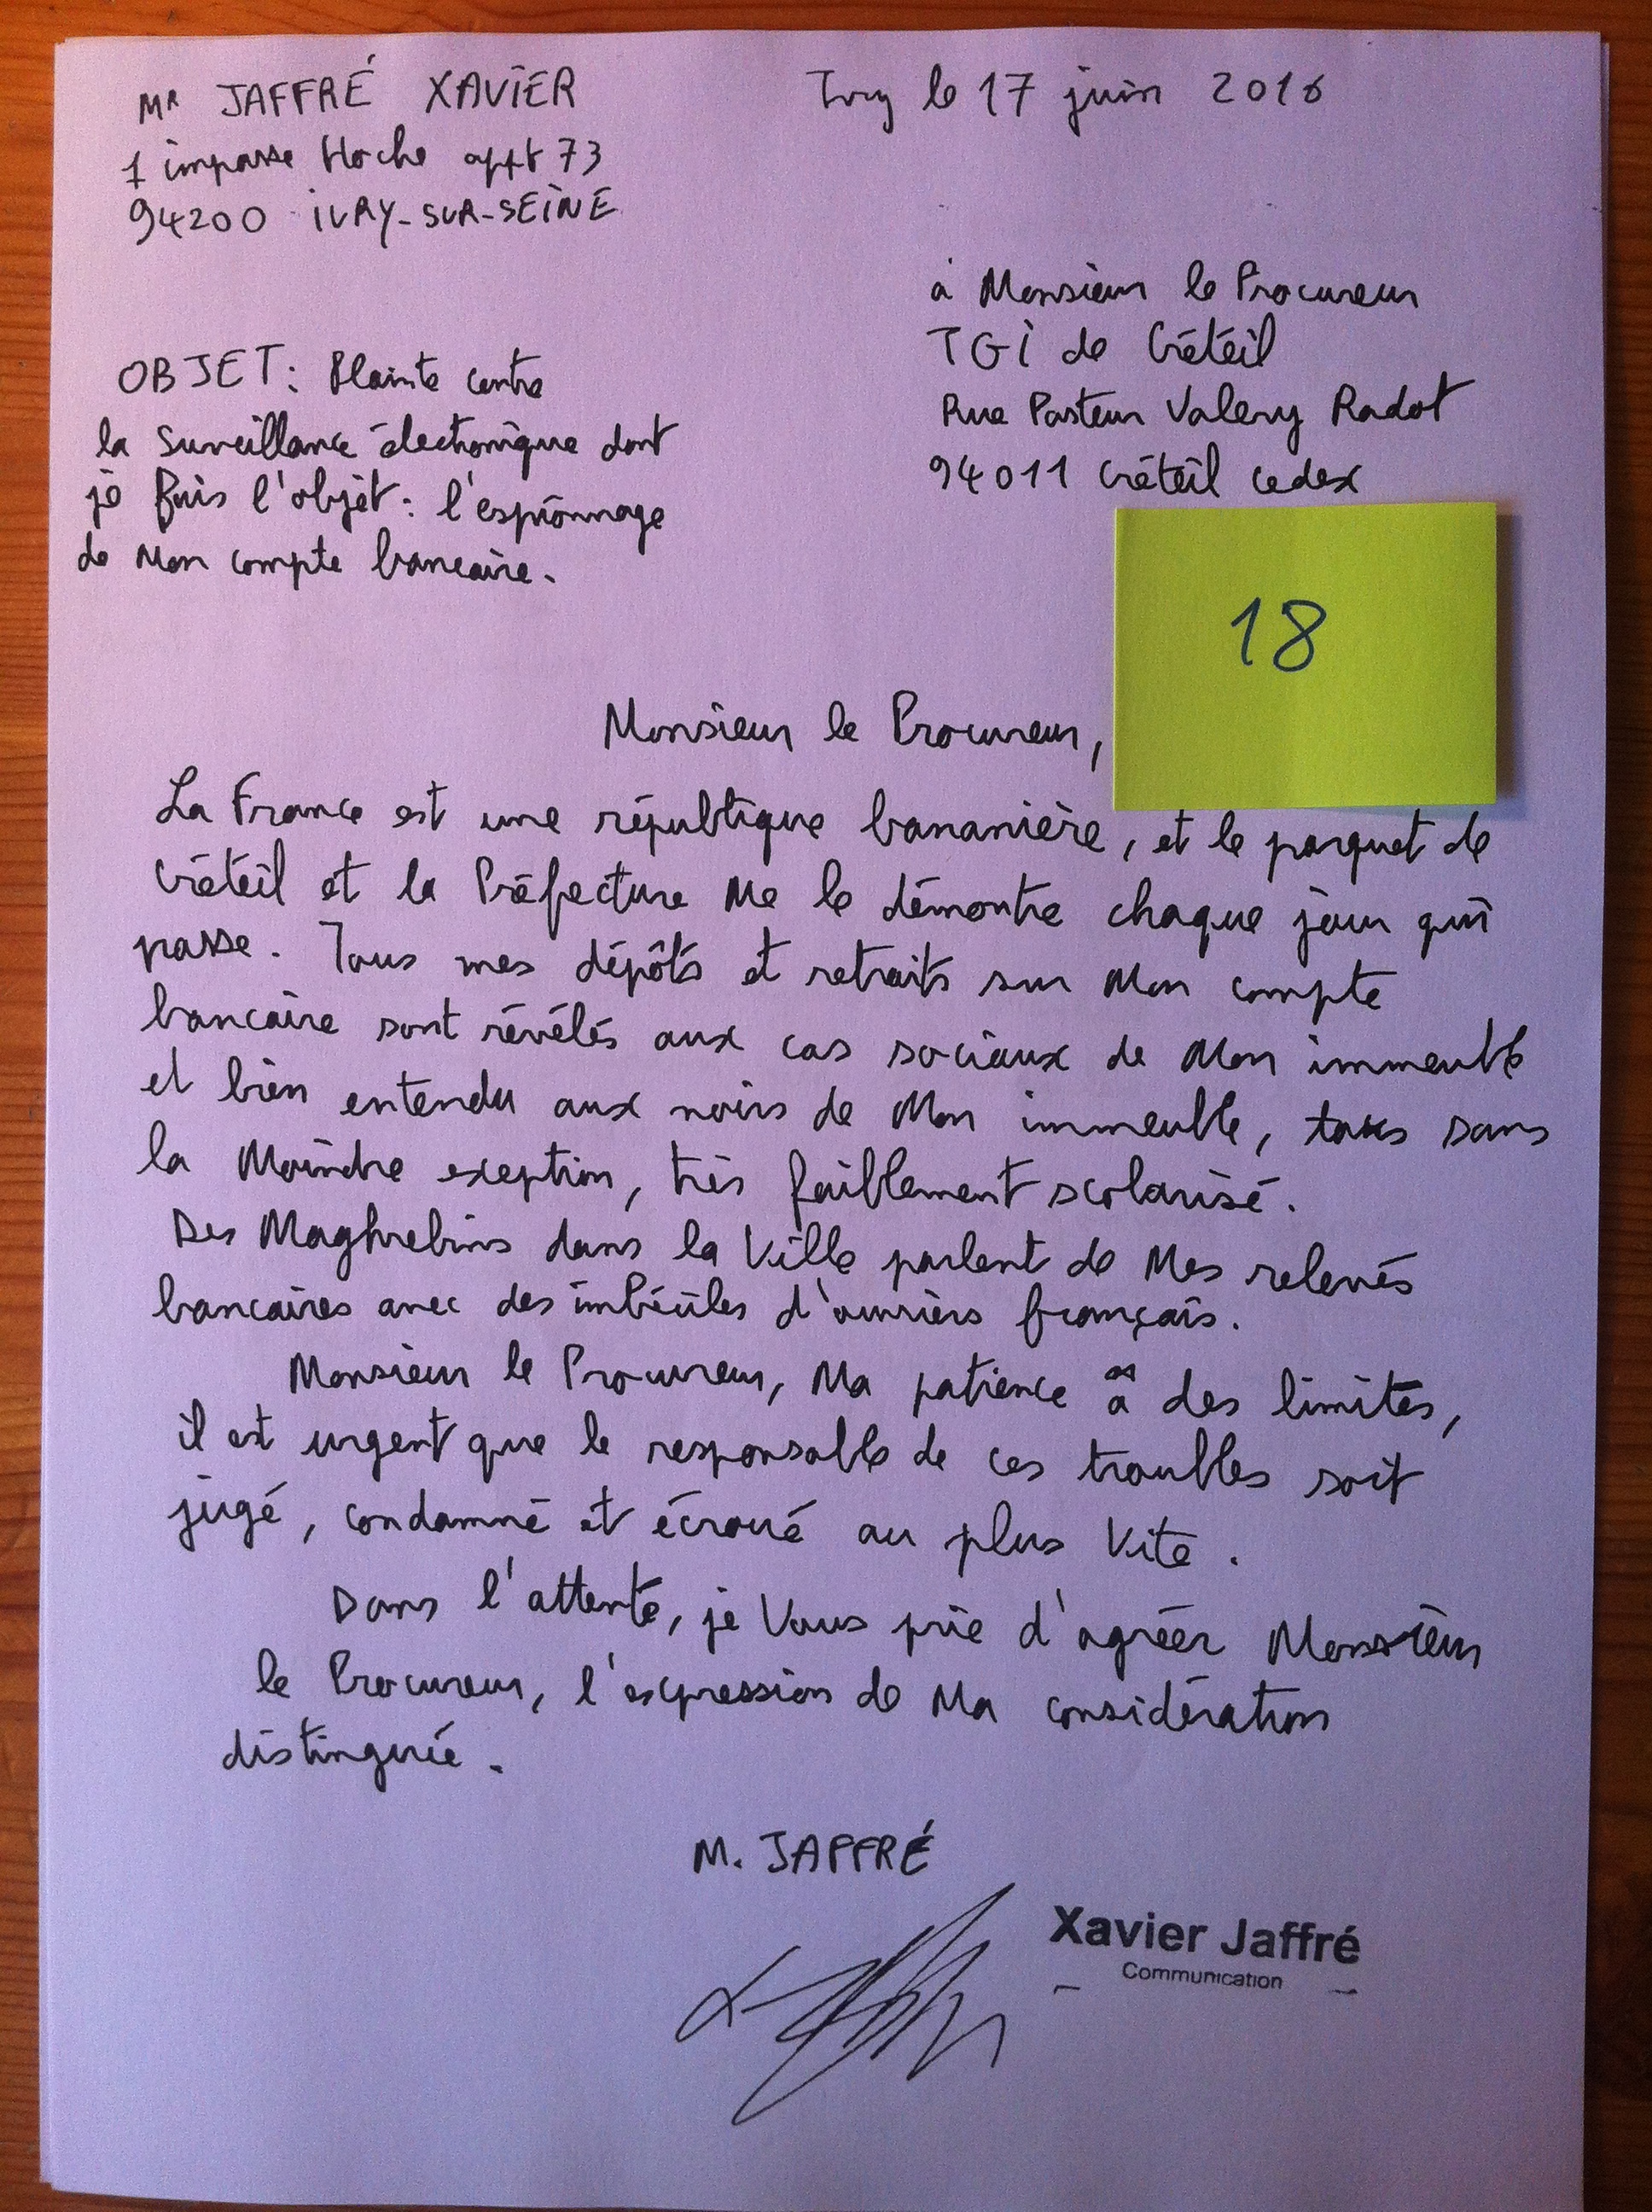 Mr JAFFRÉ XAVIER
Ivry le 17 juin 2016
1 impasse Hoche appt 73
94200 IVRY-SUR-SEINE
à Monsieur le Procureur
TGI de Créteil
Rue Pasteur Valery Radot
94011 Créteil cedex
OBJET: Plainte contre
la surveillance électronique dont
je fais l'objet: l'espionnage
de Mon compte bancaire.
18
Monsieur le Procureur,
La France est une république bananière, et le parquet de
Créteil et la Préfecture Me le démontre chaque jour qui
passe. Tous mes dépôts et retraits sur Mon compte
bancaire sont révélés aux cas sociaux de Mon immeuble
et bien entendu aux noirs de Mon immeuble, tous sans
la Moindre exeption, très faiblement scolarisé.
Des Maghrebins dans la Ville parlent de Mes relevés
bancaires avec des imbéciles d'ouvriers français.
Monsieur le Procureur, Ma patience a des limites,
il est urgent que le responsable de ces troubles soit
jugé, condamné et écroué au plus Vite.
Dans l'attente, je Vous prie d'agréer Monsieur
le Procureur, l'expression de Ma considération
distinguée.
M. JAFFRÉ
Xavier Jaffré
Communication